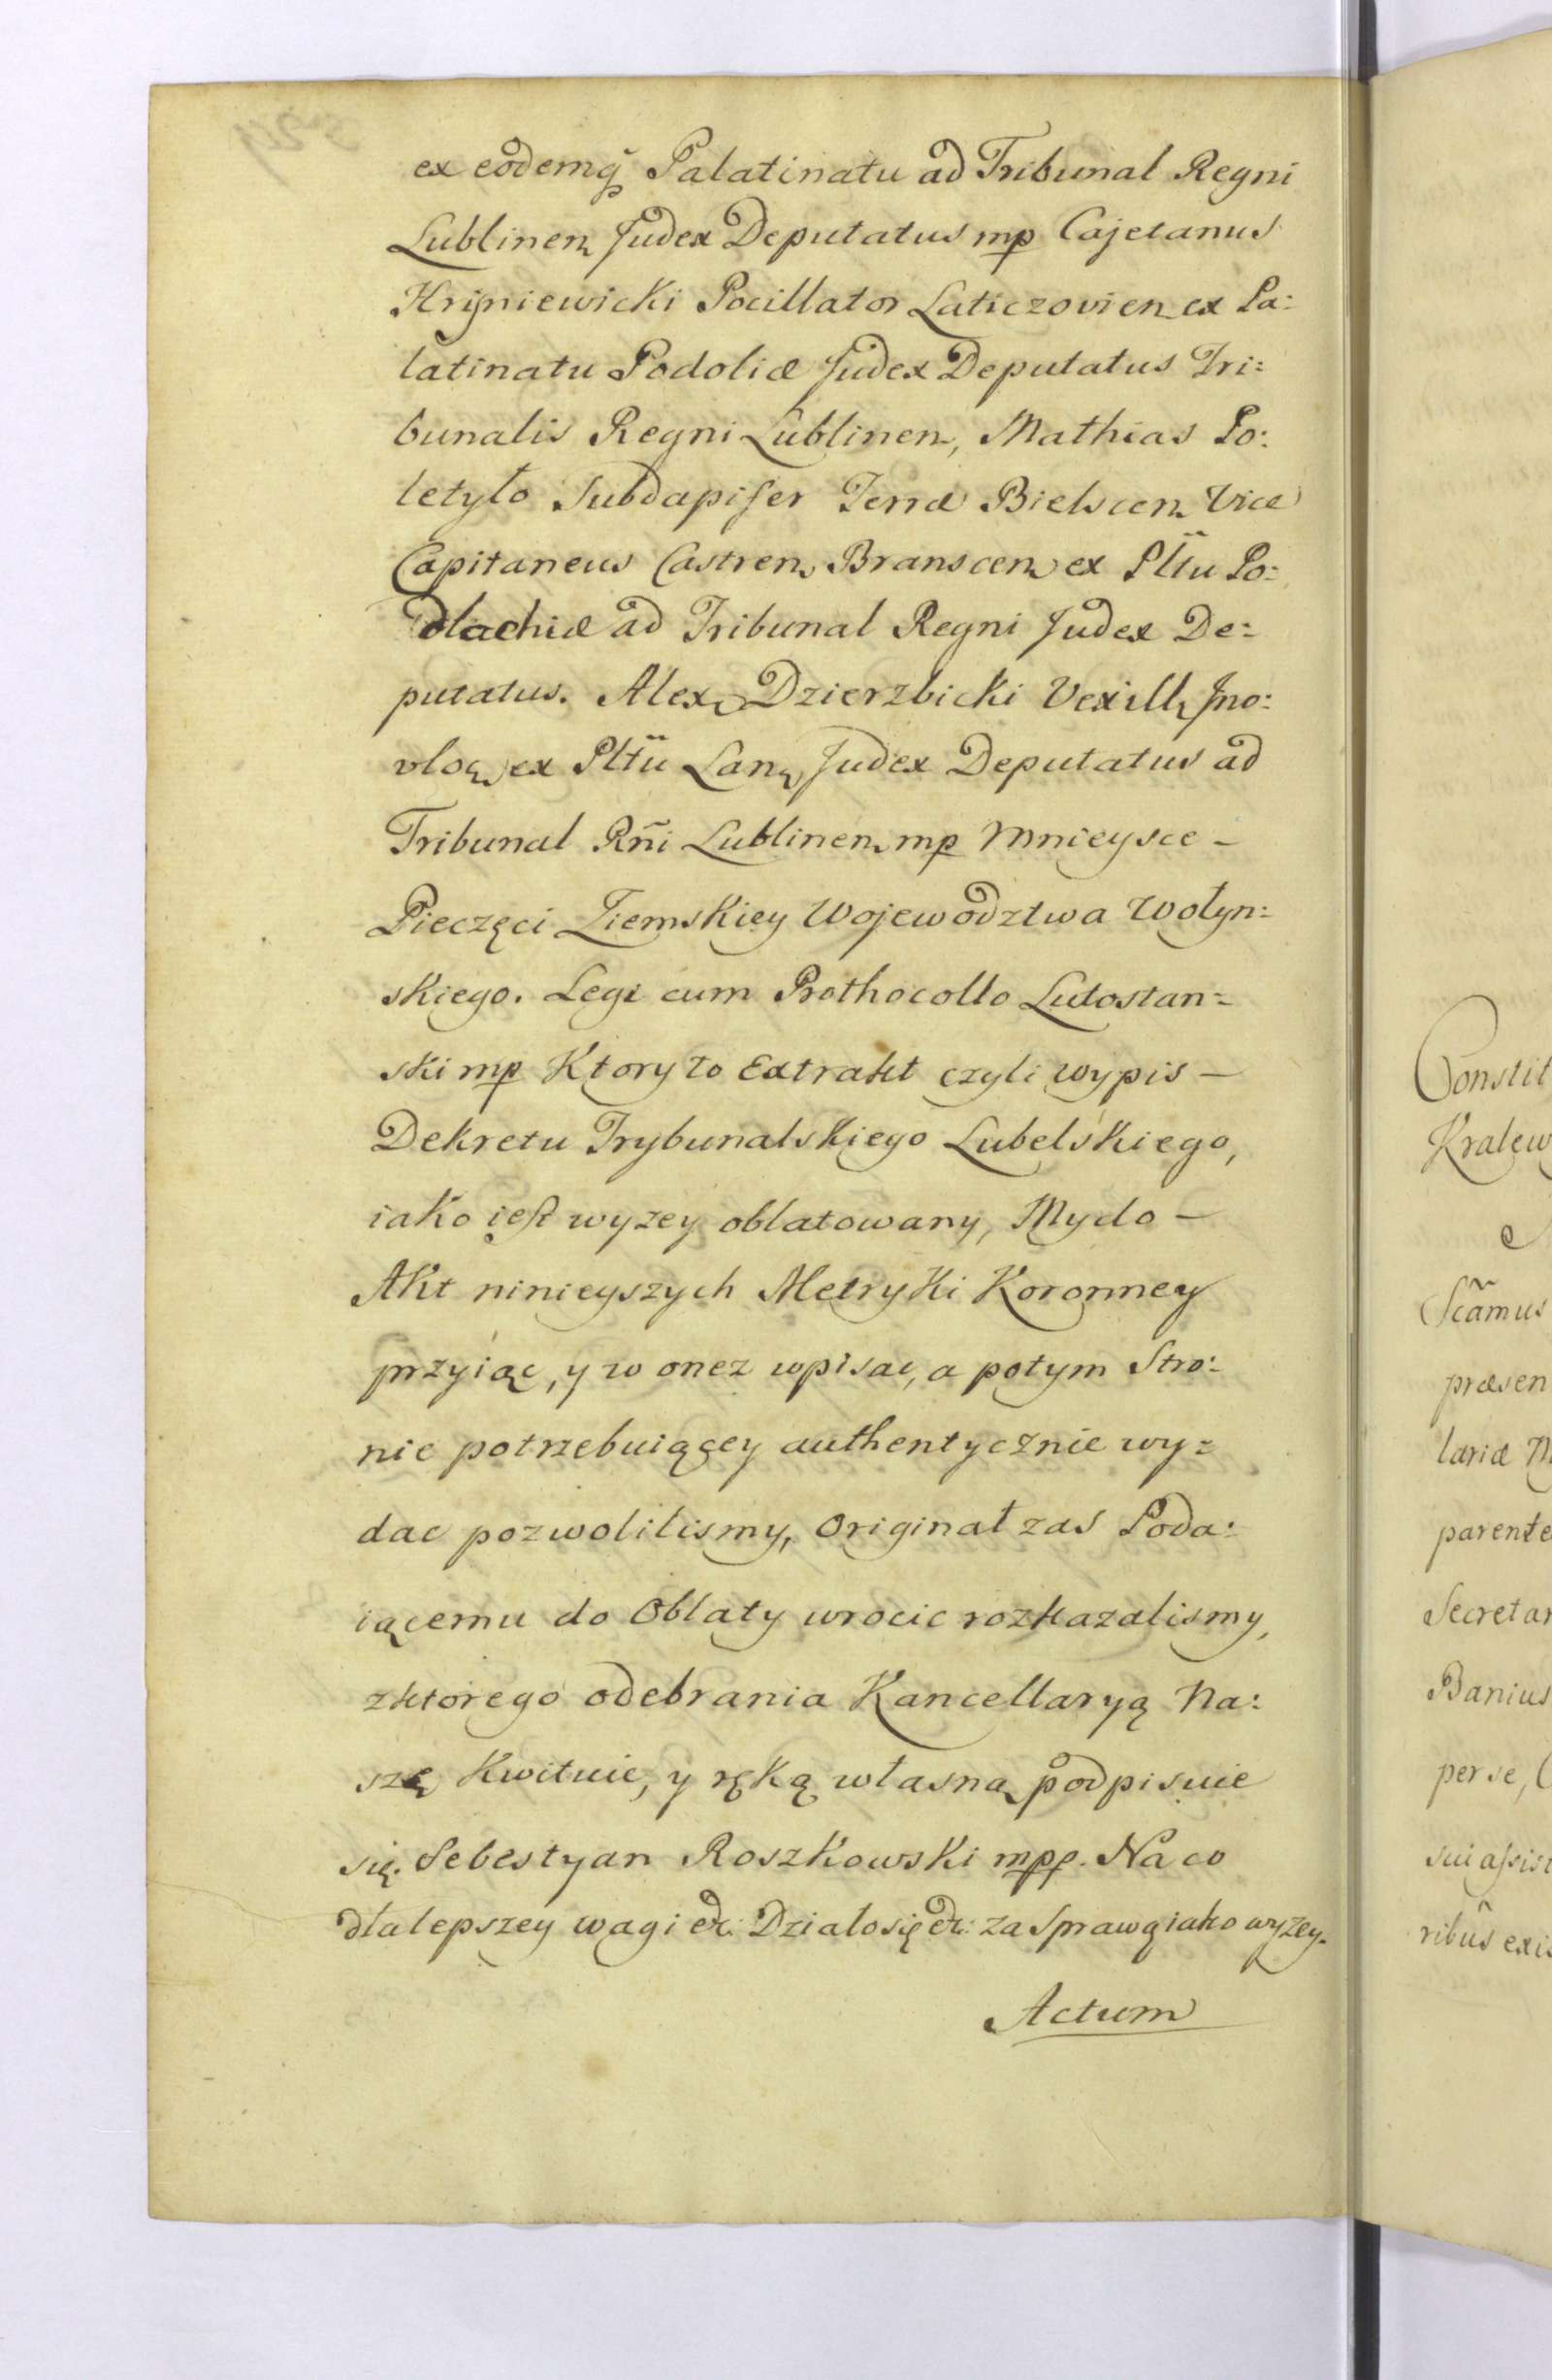 ex eodemq̃ Palatinatu ad Tribunal Regni
Lublinen Judex Deputatus mp Cajetanus
Hryniewicki Pocillator Laticzovien ex Pa:
latinatu Podoliæ Judex Deputatus Tri:
bunalis Regni Lublinen, Mathias Po:
letyło Subdapifer Terræ Bielscen Vice
Capitaneus Castren Branscen ex Pltu Po:
dlachiæ ad Tribunal Regni Judex De:
putatus. Alex Dzierzbicki Vexill Jno:
vloɕ ex Pltu Lanɕ Judex Deputatus ad
Tribunal Rñi Lublinen mp Mnieysce –
Pieczęci Ziemskiey Wojewodztwa Wołyn:
skiego. Legi cum Prothocollo Lutostan:
ski mp Ktory to Extrakt czyli wypis –
Dekretu Trybunalskiego Lubelskiego,
iako iest wyzey oblatowany, My do –
Akt ninieyszych Metryki Koronney
przyiąc, y w onez wpisac, a potym Stro:
nie potrzebuiącey authentycznie wy:
dac pozwolilismy, Originał zas Poda:
iącemu do Oblaty wrocic rozkazalismy,
z ktorego odebrania Kancellaryą Na:
szę Kwituie, y ręką własną podpisuie
się. Sebestyan Roszkowski mpp. Na co
dla lepszey wagi &c: Działo się &c: za Sprawą iako wyzey.
Actum
Constit
Kralew
Scãmus
præsen
lariæ M
parente
Secretar
Banius
per se, C
sui assist
ribũs exis